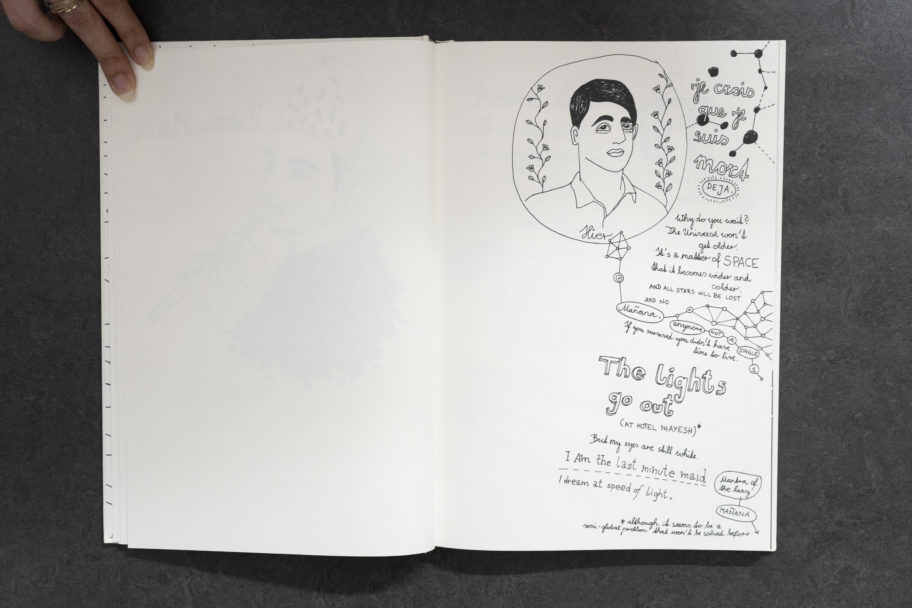 je crois
que je
suis
mort
DEJA.
Hier
Why do you wait?
The Universe won't
get older.
It's a matter of SPACE
that it becomes wider and
colder
AND ALL STARS WILL BE LOST
AND NO
Mañana.
anymore
NOT
A
SINGLE
1
If you survived you didn't have
time to live.
The lights
go out
(AT HOTEL NIAYESH)*
But my eyes are still white
I Am the last minute maid
I dream at speed of light.
Mantra of
the lazy
MAÑANA
* although it seems to be a
semi-global problem that won't be solved before